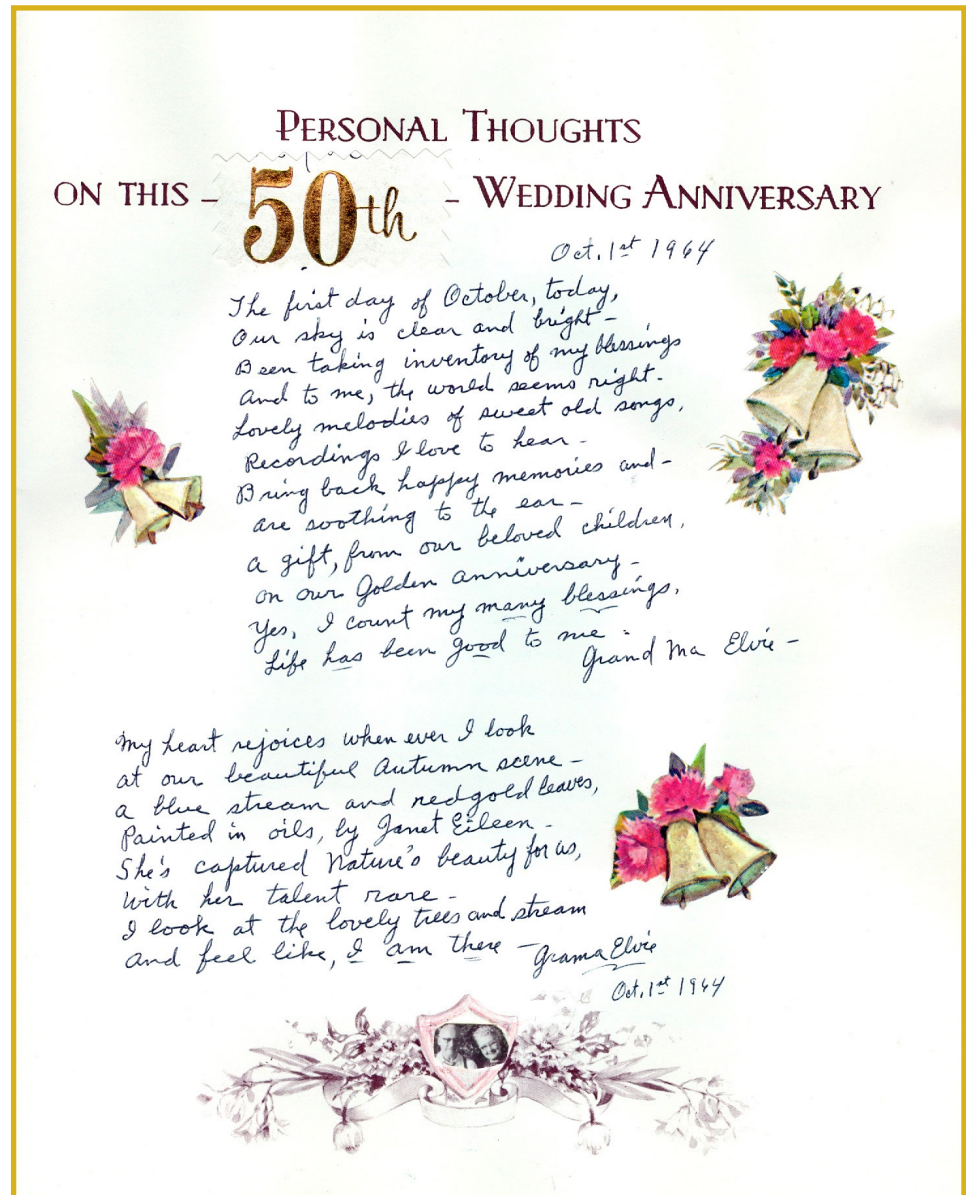 PERSONAL THOUGHTS
ON THIS – 50th – WEDDING ANNIVERSARY
Oct. 1st 1964
The first day of October, today,
Our sky is clear and bright –
Been taking inventory of my blessings
And to me, the world seems right.
Lovely melodies of sweet old songs,
Recordings I love to hear –
Bring back happy memories and –
are soothing to the ear –
a gift, from our beloved children,
on our Golden anniversary –
Yes, I count my many blessings,
Life has been good to me.
Grand Ma Elvie –
My heart rejoices when ever I look
at our beautiful Autumn scene –
a blue stream and red gold leaves,
Painted in oils, by Janet Eileen –
She's captured Nature's beauty for us,
With her talent rare –
I look at the lovely trees and stream
and feel like, I am there –
Grama Elvie
Oct. 1st 1964